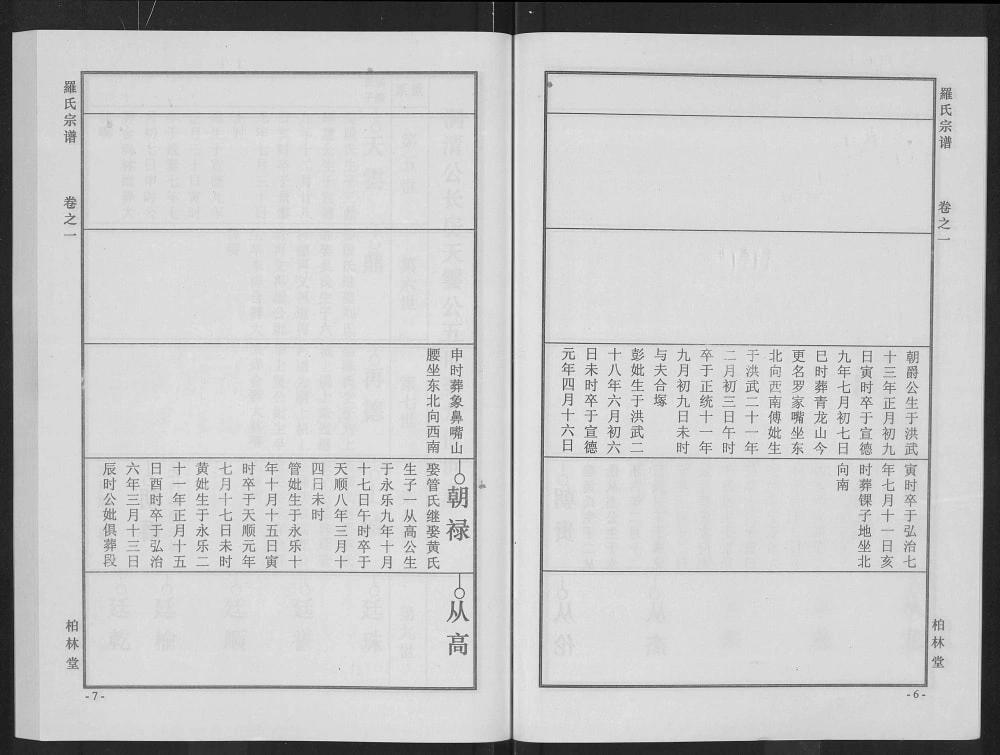 羅氏宗谱
卷之一
朝爵公生于洪武
十三年正月初九
日寅时卒于宣德
九年七月初七日
巳时葬青龙山今
更名罗家嘴坐东
北向西南傅妣生
于洪武二十一年
二月初三日午时
卒于正统十一年
九月初九日未时
与夫合塚
彭妣生于洪武二
十八年六月初六
日未时卒于宣德
元年四月十六日
寅时卒于弘治七
年七月十一日亥
时葬锞子地坐北
向南
柏林堂
-6-
申时葬象鼻嘴山
腰坐东北向西南
朝禄
娶管氏继娶黄氏
生子一从高公生
于永乐九年十月
十七日午时卒于
天顺八年三月十
四日未时
管妣生于永乐十
年十月十五日寅
时卒于天顺元年
七月十七日未时
黄妣生于永乐二
十一年正月十五
日酉时卒于弘治
六年三月十三日
辰时公妣俱葬段
从高
羅氏宗谱
卷之一
柏林堂
-7-